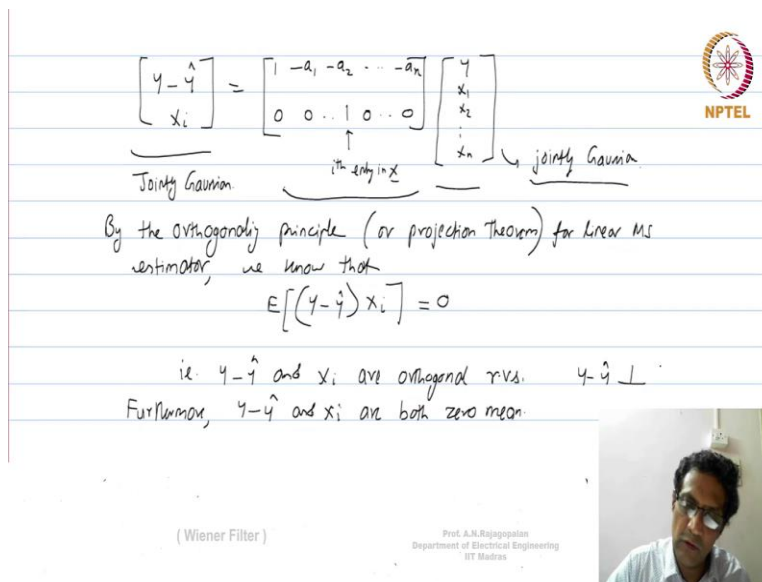 [ y - ŷ ; xᵢ ] = [ 1 -a₁ -a₂ ... -aₙ ; 0 0 .. 1 0 .. 0 ] [ y ; x₁ ; x₂ ; : ; xₙ ]
NPTEL
iᵗʰ entry in x
↳ jointly Gaussian
Jointly Gaussian.
By the orthogonality principle (or projection Theorem) for linear MS
estimator, we know that
E[(y - ŷ) xᵢ] = 0
ie. y - ŷ and xᵢ are orthogonal r.vs. y - ŷ ⊥
Furthermore, y - ŷ and xᵢ are both zero mean.
( Wiener Filter )
Prof. A.N.Rajagopalan
Department of Electrical Engineering
IIT Madras